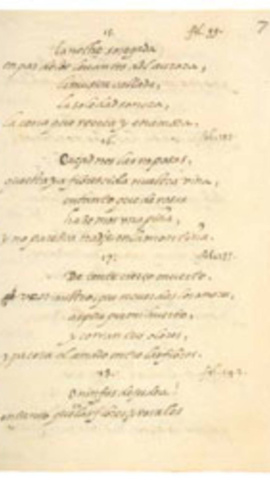 15. fol. 99. 7
La noche sosegada
en par de los levantes del aurora,
la musica callada,
la soledad sonora,
la cena que recrea y enamora.
16. fol.
Caçadnos las raposas,
questa ya florescida nuestra viña,
en tanto que de rosas
hazemos una piña,
y no paresca nadie en la montiña.
17. fol.
Detente cierço muerto.
ven austro, que recuerdas los amores,
aspira por mi huerto,
y corran sus olores,
y pacera el amado entre las flores.
18. fol.
O ninfas de judea!
en tanto quen las flores y rosales